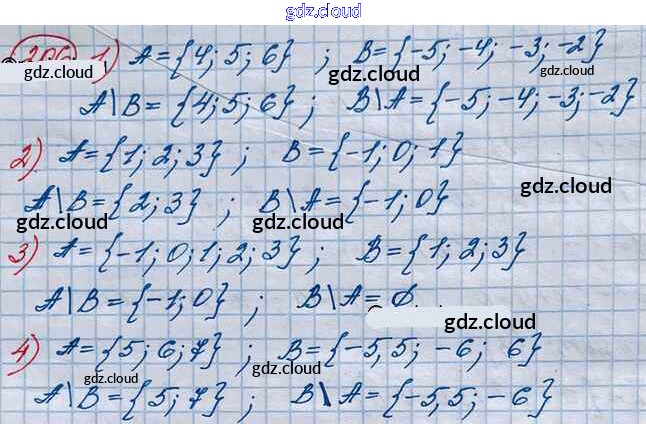 gdz.cloud
306 1) A={4; 5; 6} ; B={-5; -4; -3; -2}
gdz.cloud gdz.cloud gdz.cloud
A\B= {4; 5; 6} ; B\A={-5; -4; -3; -2}
2) A={1; 2; 3} ; B={-1; 0; 1}
gdz.cloud gdz.cloud
A\B={2; 3} ; B\A={-1; 0}
gdz.cloud gdz.cloud
3) A={-1; 0; 1; 2; 3} ; B={1; 2; 3}
A\B={-1; 0} ; B\A=∅
gdz.cloud
4) A={5; 6; 7} ; B={-5,5; -6; 6}
gdz.cloud gdz.cloud
gdz.cloud
A\B={5; 7} ; B\A={-5,5; -6}
gdz.cloud gdz.cloud